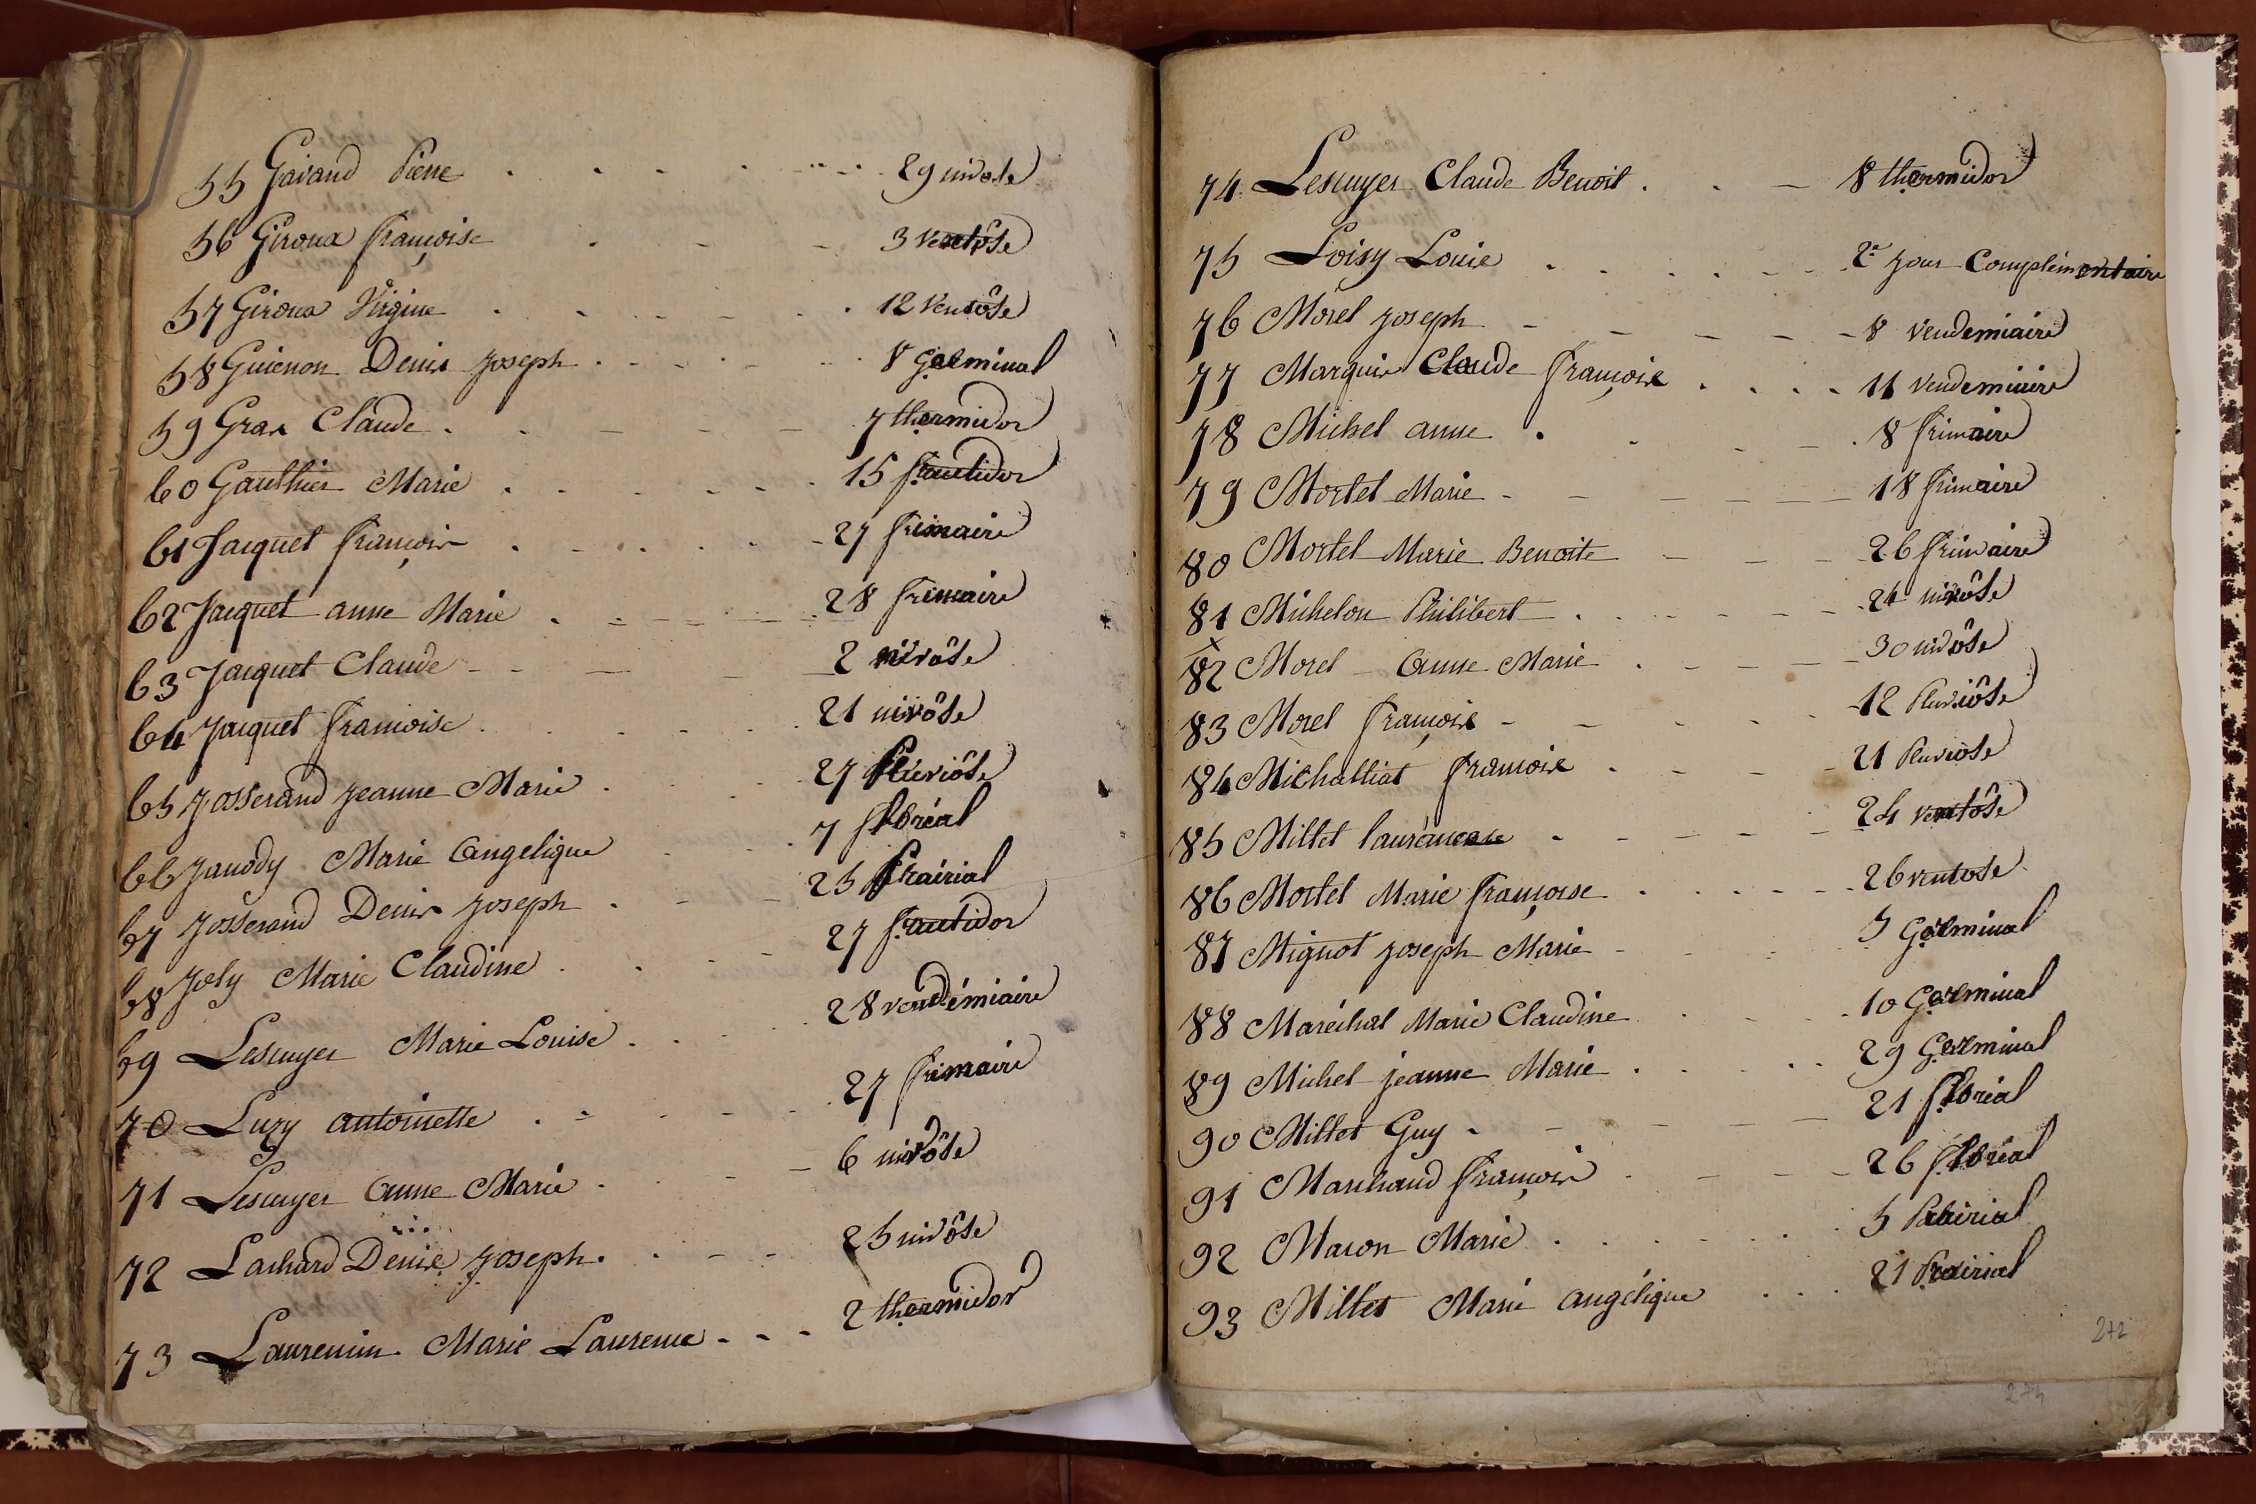 55 Gavand Pierre 29 nivose
56 Giroux françoise 3 ventôse
57 Giroux Virgine 12 Ventôse
58 Guienon Denis joseph 8 Germinal
59 Gras Claude 7 thermidor
60 Gauthier Marie 15 fructidor
61 Jacquet françois 27 frimaire
62 Jacquet anne Marie 28 frimaire
63 Jacquet Claude 2 nivôse
64 Jacquet françoise 21 nivôse
65 Josserand jeanne Marie 27 Pluviôse
66 Janody Marie Angelique 7 floréal
67 Josserand Denis joseph 25 Prairial
68 Joly Marie Claudine 27 fructidor
69 Lescuyer Marie Louise 28 vendémiaire
70 Luzy antoinette 27 frimaire
71 Lescuyer Anne Marie 6 nivôse
72 Lachard Denise joseph 25 nivôse
73 Laurencin Marie Laurence 2 thermidor
74 Lescuyer Claude Benoit 8 thermidor
75 Loisy Louis 2e jour Complémentaire
76 Morel joseph 8 vendemiaire
77 Marquis Claude françois 11 vendemiaire
78 Michel anne 8 frimaire
79 Mortel Marie 18 frimaire
80 Mortel Marie Benoite 26 frimaire
81 Michelon Philibert 24 nivôse
x
82 Morel Anne Marie 30 nivôse
83 Morel françois 12 Pluviôse
84 Michalliat françois 21 Pluviose
85 Millet 24 ventôse
86 Mortel Marie françoise 26 ventose
87 Mignot joseph Marie 5 Germinal
88 Maréchal Marie Claudine 10 Germinal
89 Michel jeanne Marie 29 Germinal
90 Millet Guy 21 floréal
91 Marchand françois 26 floréal
92 Macon Marie 5 Prairial
93 Millet Marie angélique 21 Prairial
272